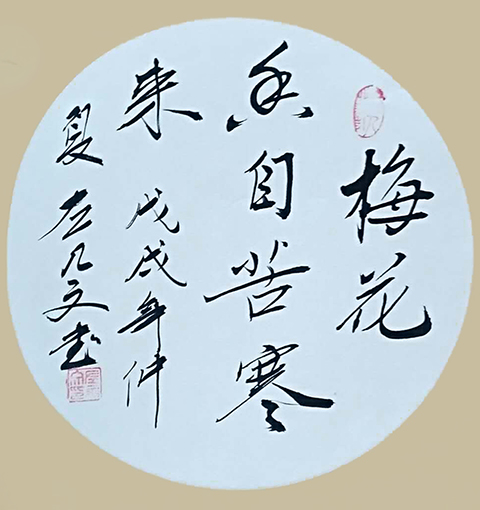 梅花
香自苦寒
来 戊戌年仲
夏 左凡文书